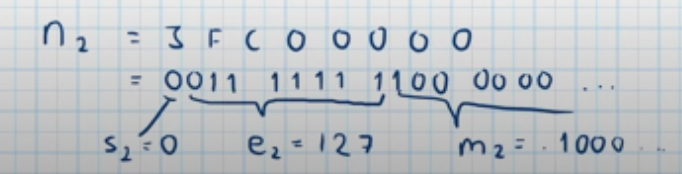 n₂ = 3 F C 0 0 0 0 0
= 0011 1111 1100 0000 ...
s₂ = 0 e₂ = 127 m₂ = .1000 ...